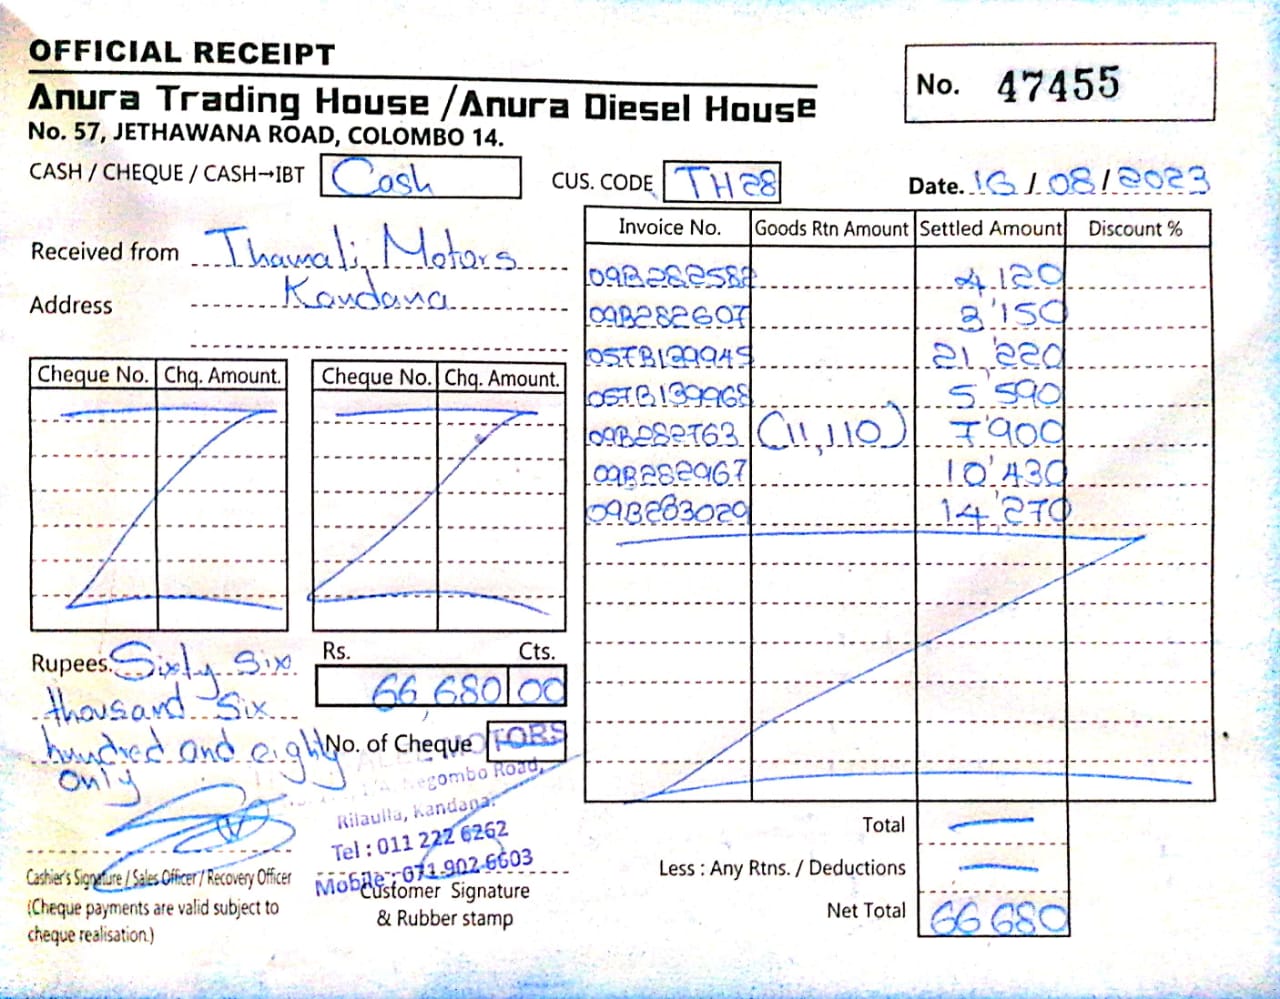 OFFICIAL RECEIPT
No. 47455
Anura Trading House / Anura Diesel House
No. 57, JETHAWANA ROAD, COLOMBO 14.
CASH / CHEQUE / CASH→IBT Cash CUS. CODE TH28 Date. 16/08/2023
Received from Thamali Motors
Address Kandana
Invoice No. Goods Rtn Amount Settled Amount Discount %
09B282582 4,120
09B282607 3'150
057B139945 21,220
057B139968 5'590
09B282763 (11,110) 7'900
09B282967 10'430
09B283029 14,270
Cheque No. Chq. Amount. Cheque No. Chq. Amount.
Rupees. Sixty Six
thousand Six
hundred and eighty
only
Rs. Cts.
66,680 00
No. of Cheque
MOTORS
Negombo Road,
Rilaulla, Kandana.
Tel : 011 222 6262
Mobile : 071-902-6603
Cashier's Signature / Sales Officer / Recovery Officer
(Cheque payments are valid subject to
cheque realisation.)
Customer Signature
& Rubber stamp
Total —
Less : Any Rtns. / Deductions —
Net Total 66680